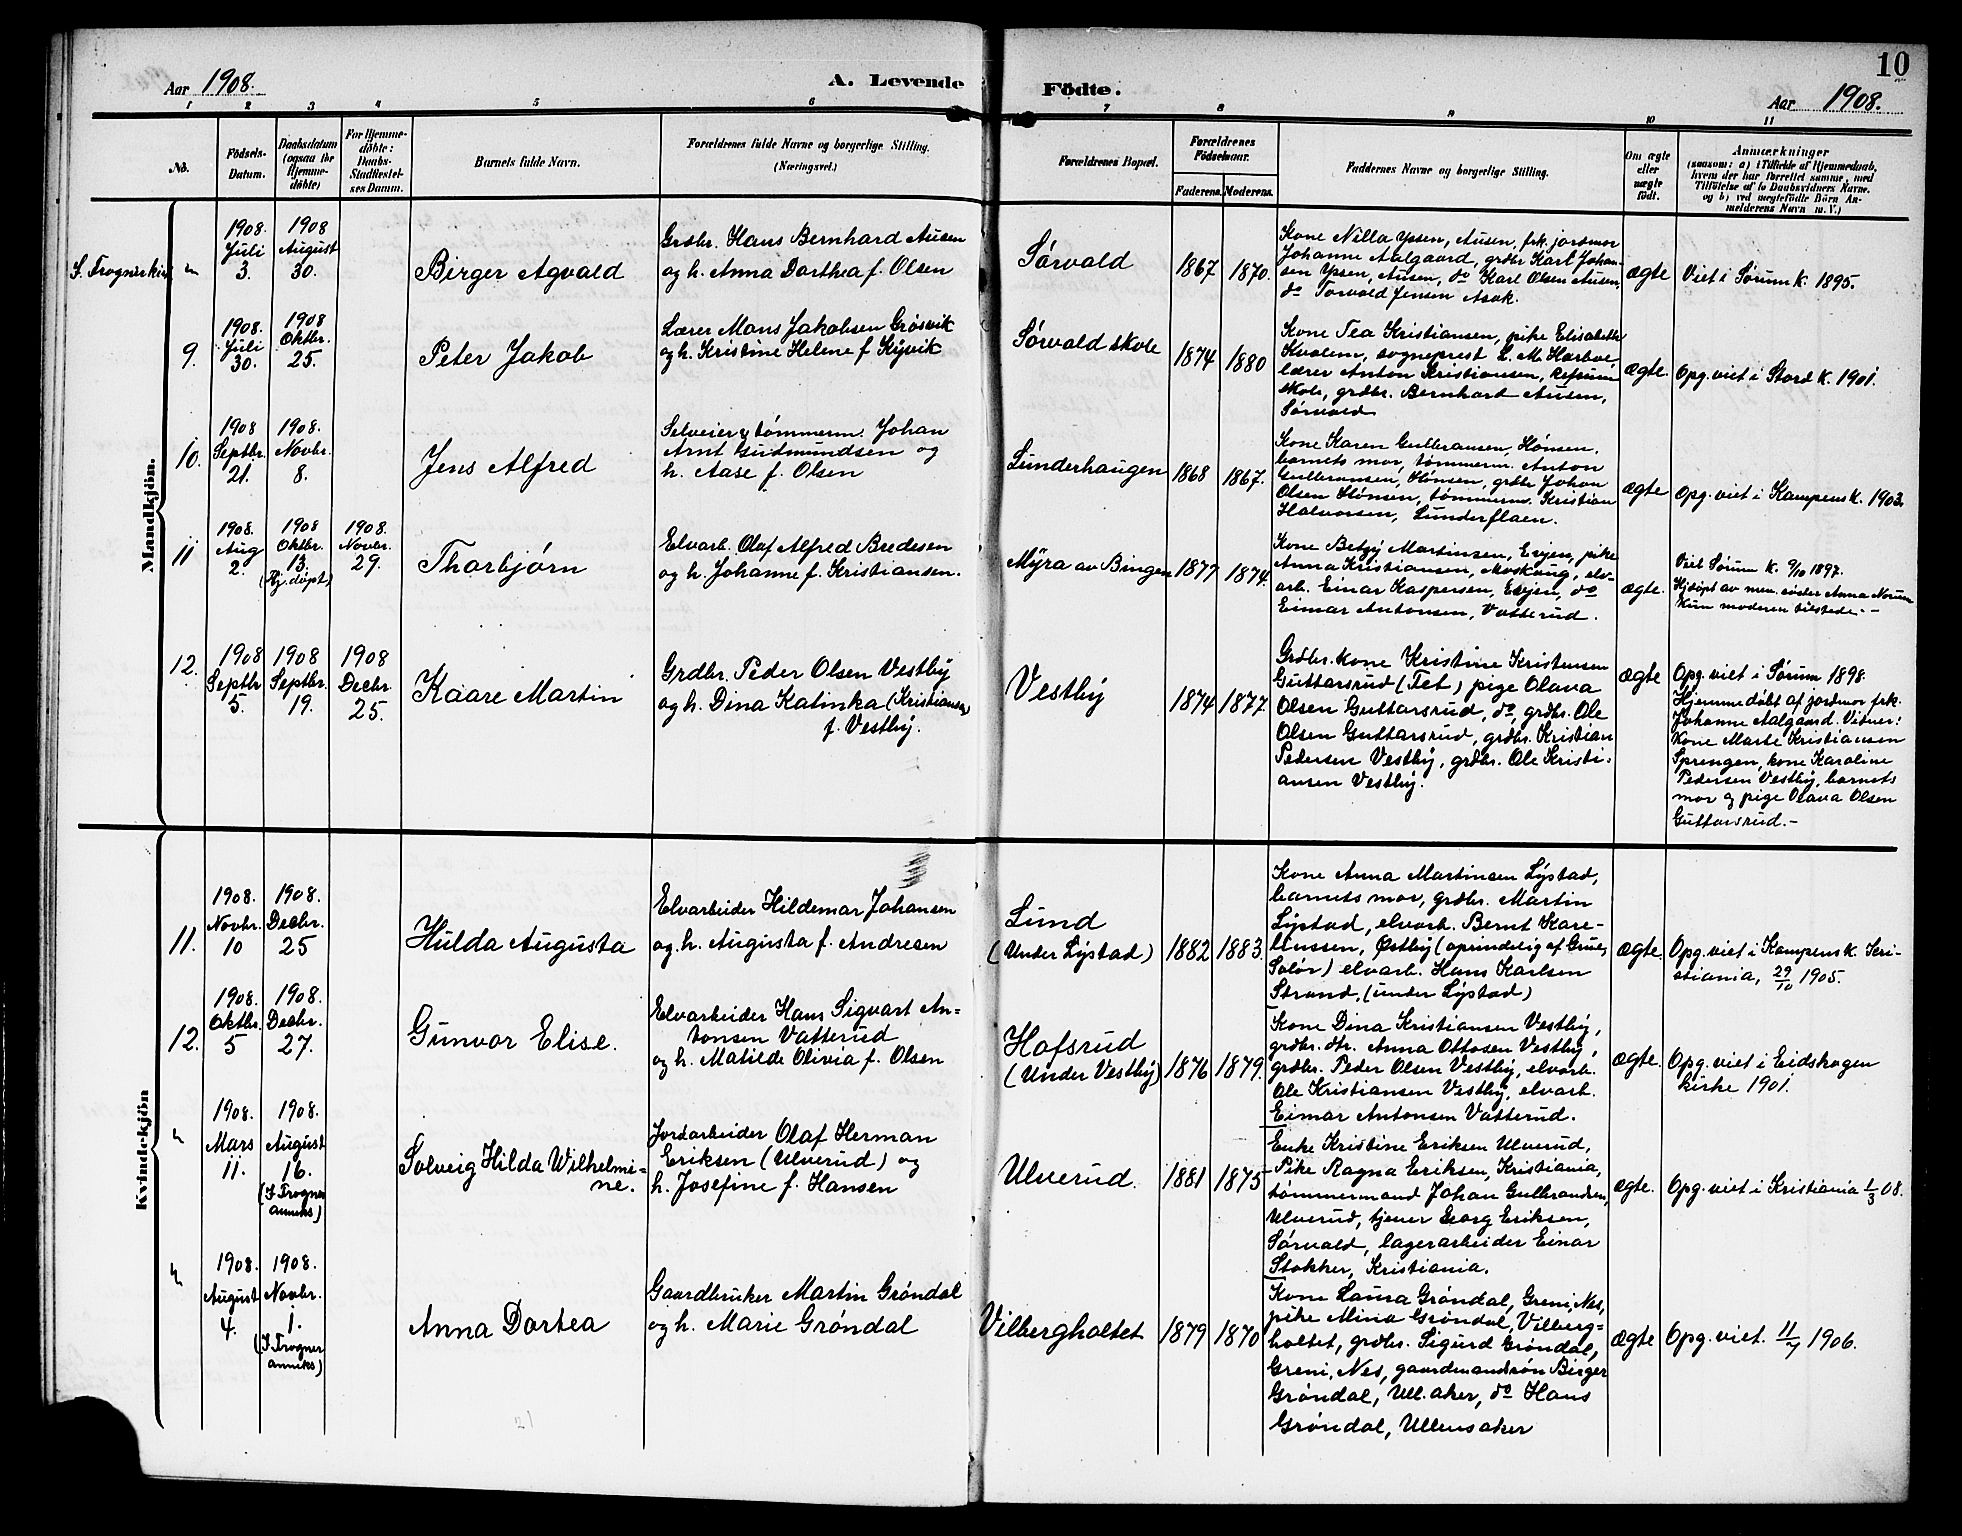 10
Aar 1908.
A. Levende Födte.
Aar 1908.
1 2 3 4 5 6 7 8 9 10 11
No.
Födsels-
Datum.
Daabsdatum
(ogsaa for
Hjemme-
döbte)
For Hjemme-
döbte:
Daabs-
Stadfæstel-
ses Datum.
Barnets fulde Navn.
Forældrenes fulde Navne og borgerlige Stilling.
(Næringsvei.)
Forældrenes Bopæl.
Forældrenes
Födselsaar.
Faderens. Moderens.
Faddernes Navne og borgerlige Stilling.
Om ægte
eller
uægte
födt.
Anmærkninger
(saasom: a) i Tilfælde af Hjemmedaab,
hvem der har forrettet samme, med
Tilföielse af to Daabsvidners Navne.
og b) ved uægtefödte Börn An-
melderens Navn m. V.)
Mandkjön.
1908.
Juli
3.
1908
August
30.
Birger Agvald
Grdbr. Hans Bernhard Ausen
og h. Anna Dorthea f. Olsen
Sørvald
1867 1870.
Kone Nilla Ypsen, Ausen, frk. jordmor
Johanne Aalgaard, grdbr Karl Johan-
sen Ypsen, Ausen, do Karl Olsen Ausen,
do Torvald Jensen Asak.
ægte
Viet i Sørum k. 1895.
9.
1908.
Juli
30.
1908
Oktbr.
25.
Peter Jakob
Lærer Mons Jakobsen Grøsvik
og h. Kristine Helene f Kyvik
Sørvald skole
1874 1880
Kone Tea Kristiansen, pike Elisabeth
Kvalem, sogneprest L. M. Harboe,
lærer Anton Kristiansen, Refsum
skole, grdbr. Bernhard Ausen,
Sørvald
ægte.
Opg. viet i Stord k. 1901.
10.
1908
Septbr.
21.
1908.
Novbr.
8.
Jens Alfred
Selveier og tømmerm. Johan
Arnt Gudmundsen og
h. Aase f. Olsen
Lunderhaugen
1868 1867.
Kone Karen Gulbransen, Hønsen,
barnets mor, tømmerm. Anton
Gulbransen, Hønsen, grdbr Johan
Olsen Hønsen, tømmerm. Kristian
Halvorsen, Lunderflaen.
ægte
Opg. viet i Kampens k. 1903.
11
1908.
Aug
2.
1908
Oktbr.
13.
(Hj. døpt)
1908.
Novbr.
29.
Thorbjørn
Elvarb. Olaf Alfred Bredesen
og h. Johanne f. Kristiansen.
Myra av Bingen
1877 1874.
Kone Betzy Martinsen, Evjen, pike
Anna Kristiansen, Moskaug, elv-
arb. Einar Kaspersen, Evjen, do
Eimar Antonsen, Vatterud.
ægte.
Viet Sørum k. 9/10 1897.
Hjdøpt av men. søster Anna Norum
Kun moderen tilstede. -
12.
1908
Septbr
5.
1908
Septbr.
19.
1908
Decbr.
25.
Kaare Martin
Grdbr. Peder Olsen Vestby
og h. Dina Katinka (Kristiansen)
f. Vestby.
Vestby
1874 1877
Grdbr. kone Kristine Kristensen
Guttarsrud (Fet) pige Olava
Olsen Guttarsrud, do, grdbr. Ole
Olsen Guttarsrud, grdbr. Kristian
Pedersen Vestby, grdbr. Ole Kristi-
ansen Vestby.
ægte
Opg. viet i Sørum 1898.
Hjemmedøbt af jordmor frk.
Johanne Aalgaard. Vidner:
Kone Marte Kristiansen
Sprengen, kone Karoline
Pedersen Vestby, barnets
mor og pige Olava Olsen
Guttarsrud. -
Kvindekjön
11.
1908.
Novbr.
10
1908.
Decbr.
25
Hulda Augusta
Elvarbeider Hildemar Johansen
og h. Augusta f. Andresen
Lund
(Under Lystad)
1882 1883.
Kone Anna Martinsen Lystad,
barnets mor, grdbr. Martin
Lystad, elvarb. Bernt Kare-
liussen, Østby (oprindelig af Grue,
Solør) elvarb. Hans Karlsen
Strand, (under Lystad)
ægte.
Opg. viet i Kampens k. Kri-
stiania, 29/10 1905.
12.
1908.
Oktbr.
5
1908.
Decbr.
27.
Gunvor Elise.
Elvarbeider Hans Sigvart An-
tonsen Vatterud
og h. Matilde Olivia f. Olsen
Hofsrud
(Under Vestby)
1876 1879.
Kone Dina Kristiansen Vestby,
grdbr. dtr. Anna Ottosen Vestby,
grdbr. Peder Olsen Vestby, elvarb.
Ole Kristiansen Vestby, elvarb.
Eimar Antonsen Vatterud.
ægte.
Opg. viet i Eidskogen
kirke 1901.
1908.
Mars
11.
1908.
August
16.
(I Frogner
anneks)
Solveig Hilda Wilhelmi-
ne.
Jordarbeider Olaf Herman
Eriksen (Ulverud) og
h. Josefine f. Hansen
Ulverud.
1881 1875
Enke Kristine Eriksen Ulverud,
Pike Ragna Eriksen, Kristiania,
tømmermand Johan Gulbrandsen,
Ulverud, tjener Georg Eriksen,
Sørvald, lagerarbeider Einar
Stokker, Kristiania.
ægte.
Opg. viet i Kristiania 1/3 08.
1908.
August
4.
1908.
Novbr.
1.
(I Frogner
anneks)
Anna Dortea
Gaardbruker Martin Grøndal
og h. Marie Grøndal
Vilbergholtet
1879 1870
Kone Laura Grøndal, Greni, Nes,
pike Mina Grøndal, Vilberg-
holtet, grdbr. Sigurd Grøndal,
Greni, Nes, gaardmandsøn Birger
Grøndal, Ull.aker, do Hans
Grøndal, Ullensaker
ægte
Opg. viet. 11/7 1906.